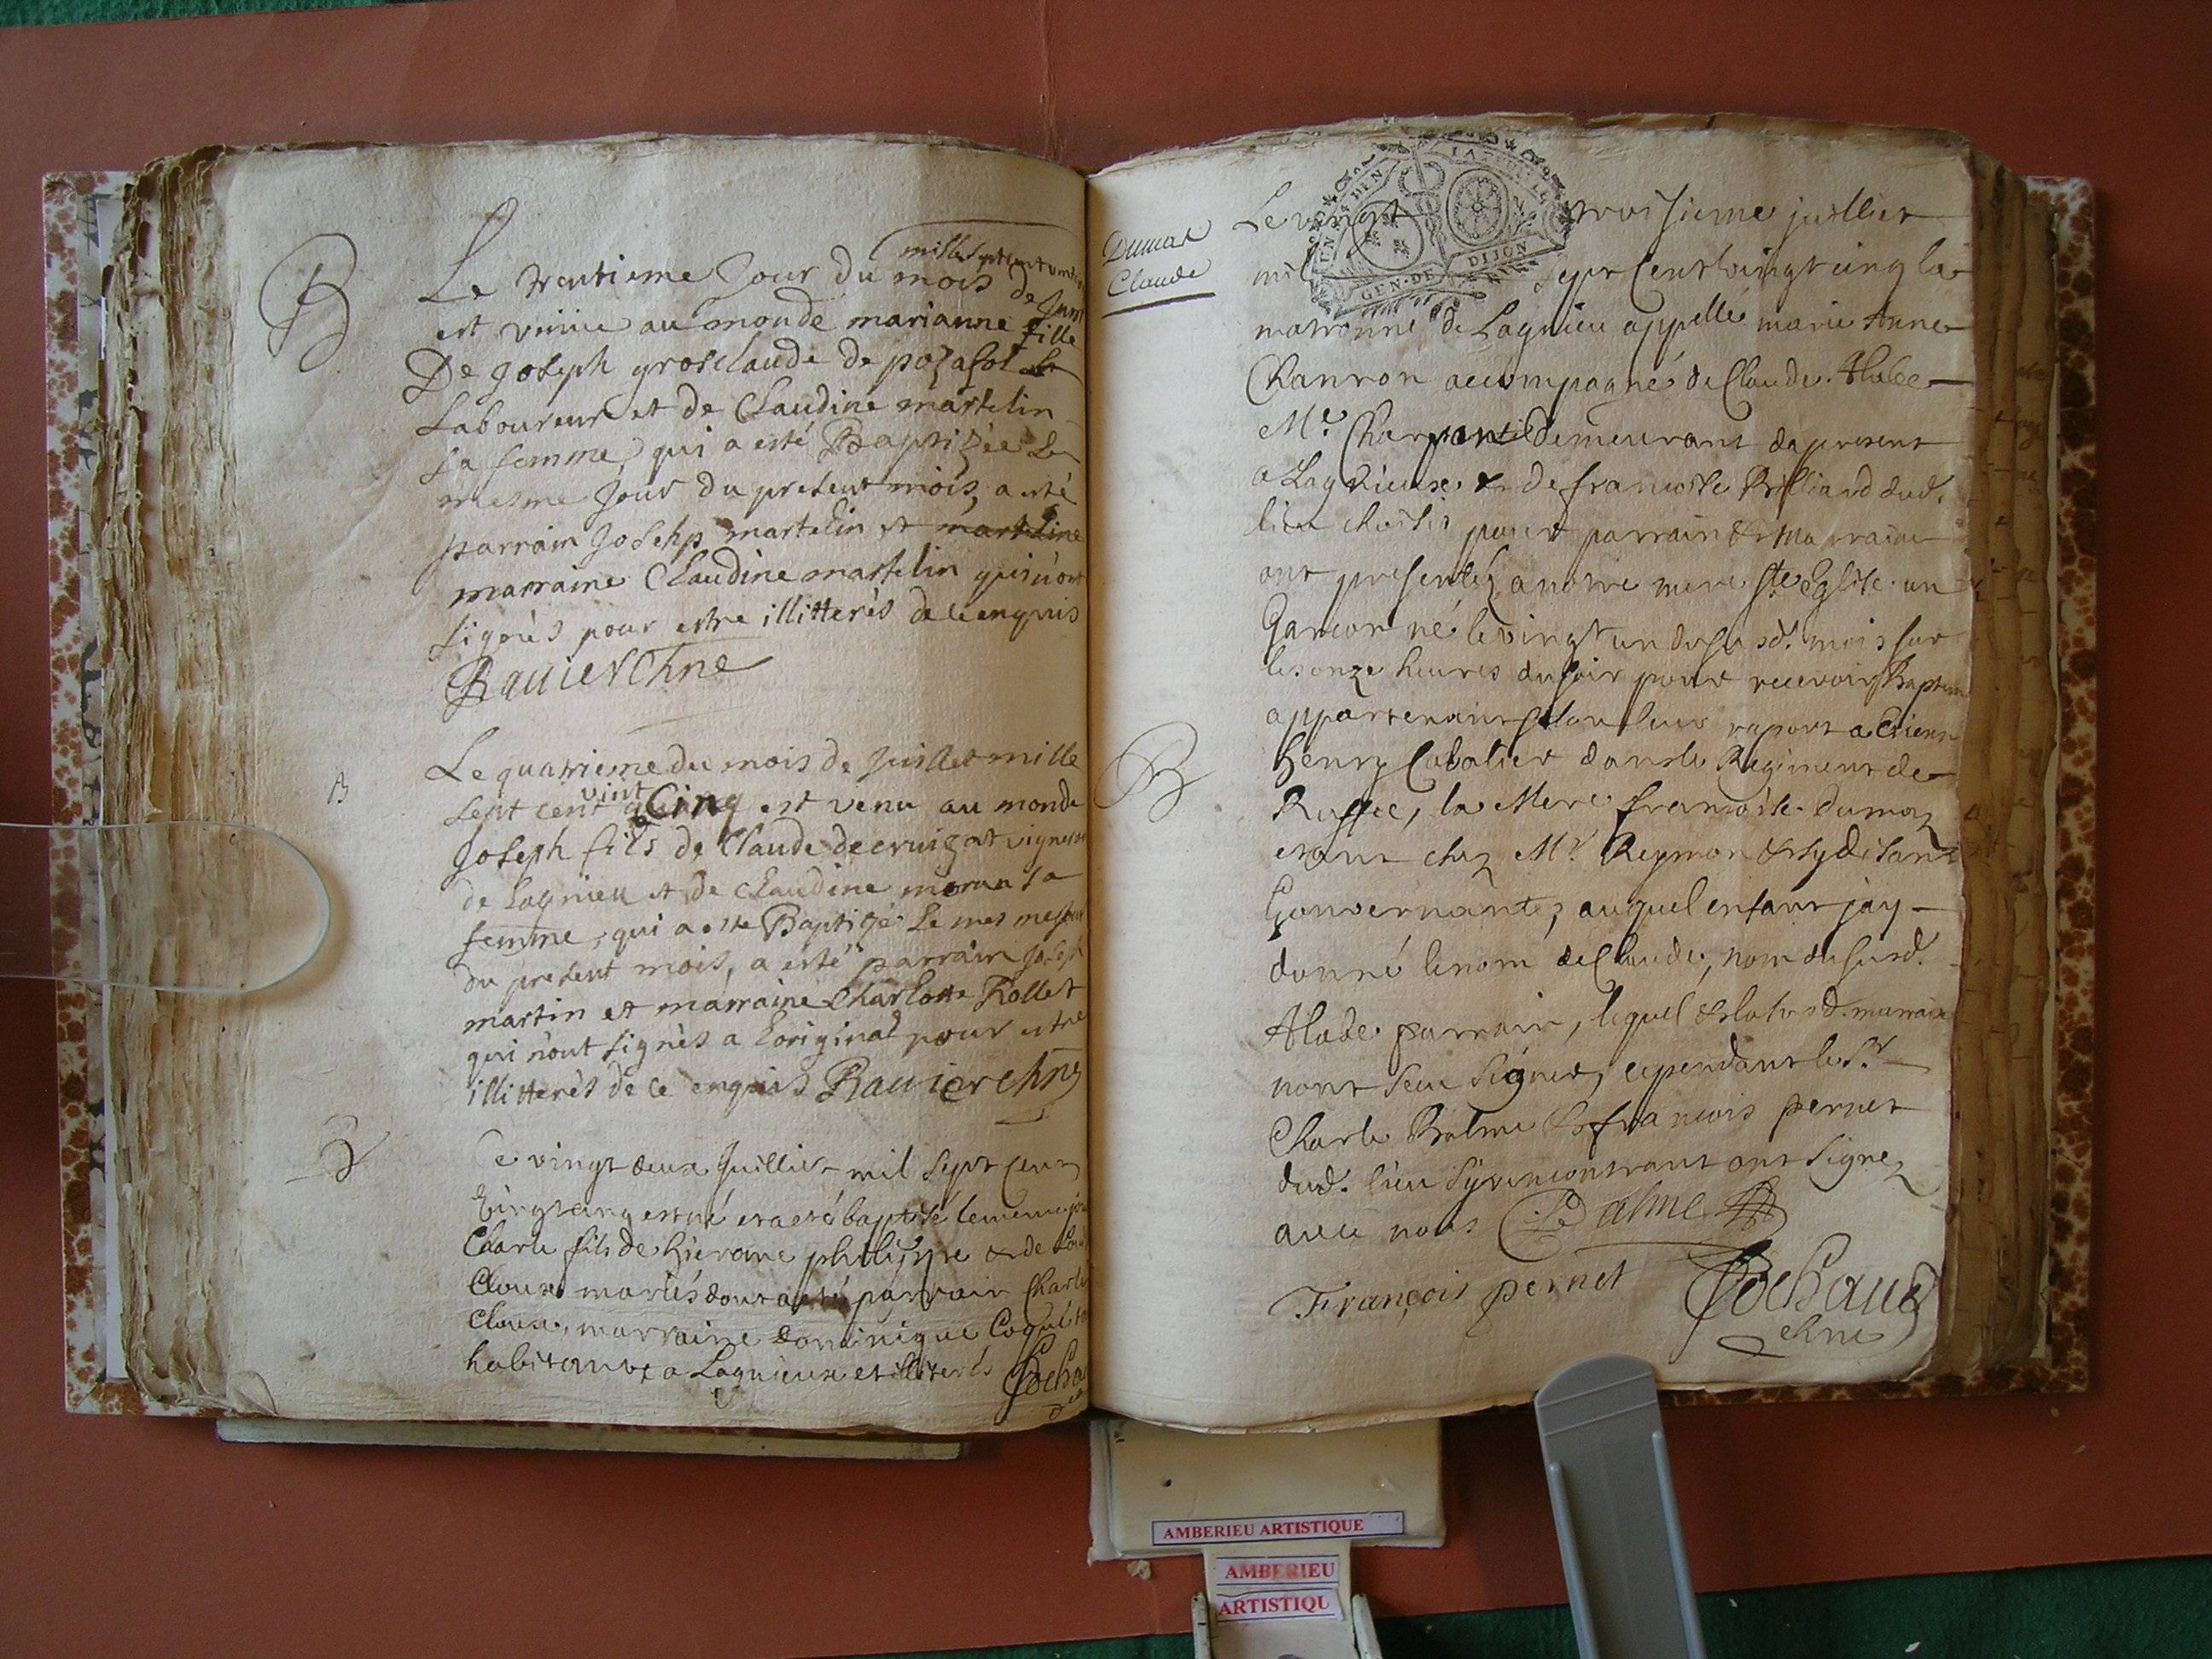 B
mille sept cent vint
Le trentieme Jour du mois de Juin
est venüe au monde marianne fille
De Joseph grosclaude de pozafol
Laboureur et de Claudine martelin
sa femme, qui a esté Baptizée Le
mesme Jour du present mois, a esté
parrain Josehp martelin et marteline
marraine Claudine martelin qui n'ont
signés pour estre illitterés de ce enquis
Ravier Chne
B
Le quatrieme du mois de Juillet mille
sept cent vint Cinq est venu au monde
Joseph fils de Claude decruigat vigneron
de Lagnieu et de Claudine moran sa
femme, qui a este Baptizé Le mes mesme
du present mois, a esté parrain Joseph
martin et marraine Charlotte Rollet
qui n'ont signés a L'original pour estre
illitterés de ce enquis Ravier chne
B
Ce vingt deux Juillier mil sept cent
vingt cinq est né et a eté baptisé le meme jour
Charle fils de hierome philippe & de
Cloux mariés dont a eté parrain Charle
Cloux, marraine Dominique
habitants a Lagnieux et illiterés Cochau
Dumas
Claude
B
Le vingt troisieme juillier
mil sept cent vingt cinq la
matronne de Lagnieu appellé marie Anne
Chanron accompagné de Claude Alabe
Me. Charpentié demeurant da present
a Lagnieux & de francoise Brilliand dud.
lieu choisis pour parrain & marraine
ont presentéz a notre mere Ste Eglise un
Garcon né le vingt un du susd. mois sur
les onze heures du soir pour recevoir Bapteme
appartenant selon leur raport a Etienne
henry Cavalier dans le Regiment de
Ruffec, la Mere francoise Dumaz
etant chez Mr. Reymon & sy disant
Gouvernante, auquel enfant jay
donné le nom de Claude, nom du susd.
Alabe parrain, lequel & la susd. marraine
nont seu signer, cependant le Sr.
Charle Balme & francois pernet
dud. lieu sy rencontrant ont signez
avec nous Balme
François pernet Cochaud
chne
GEN·DE DIJON
AMBERIEU ARTISTIQUE
AMBERIEU
ARTISTIQU